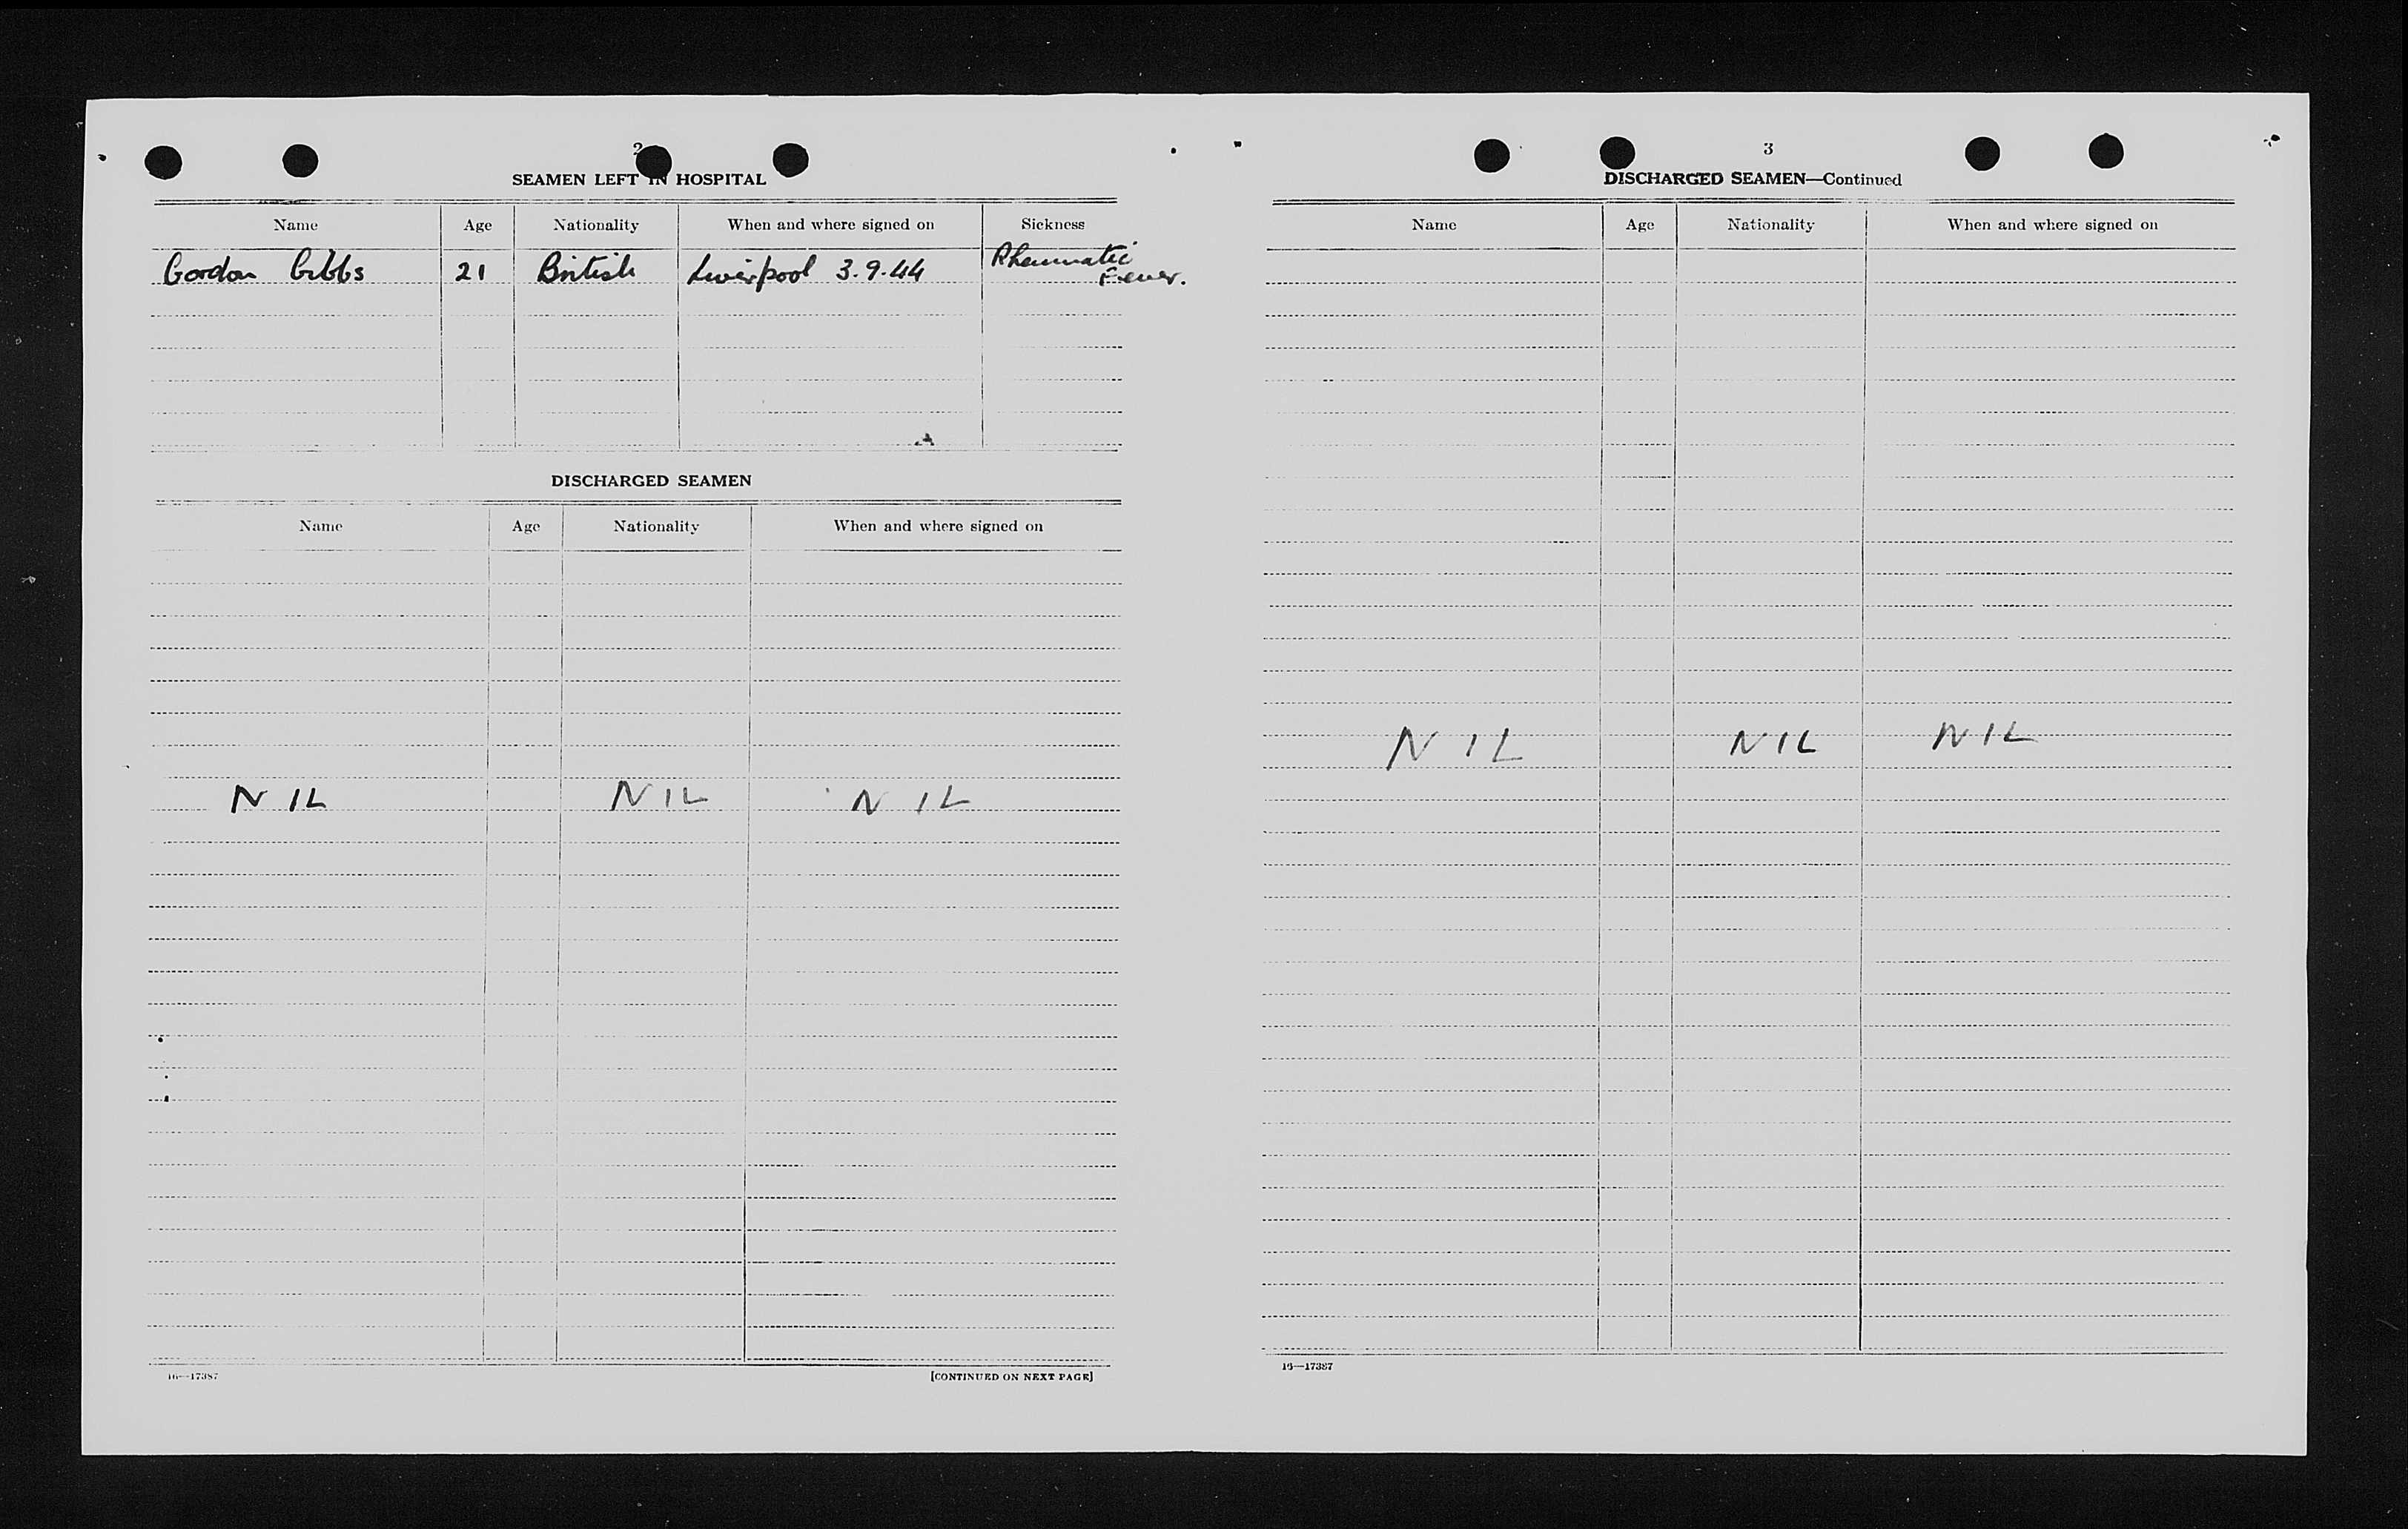 2
SEAMEN LEFT IN HOSPITAL
Name Age Nationality When and where signed on Sickness
Gordon Gibbs 21 British Liverpool 3.9.44 Rheumatic
Fever.
DISCHARGED SEAMEN
Name Age Nationality When and where signed on
NIL NIL NIL
16—17387 [CONTINUED ON NEXT PAGE]
3
DISCHARGED SEAMEN—Continued
Name Age Nationality When and where signed on
NIL NIL NIL
16—17387